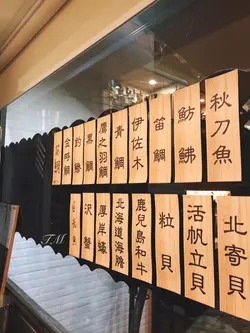 秋刀魚
魴鮄
笛鯛
伊佐木
青鯛
鷹之羽鯛
黒鯛
金時鯛
北寄貝
活帆立貝
粒貝
鹿兒島和牛
北海道海膽
厚岸蠔
沢蟹
TM